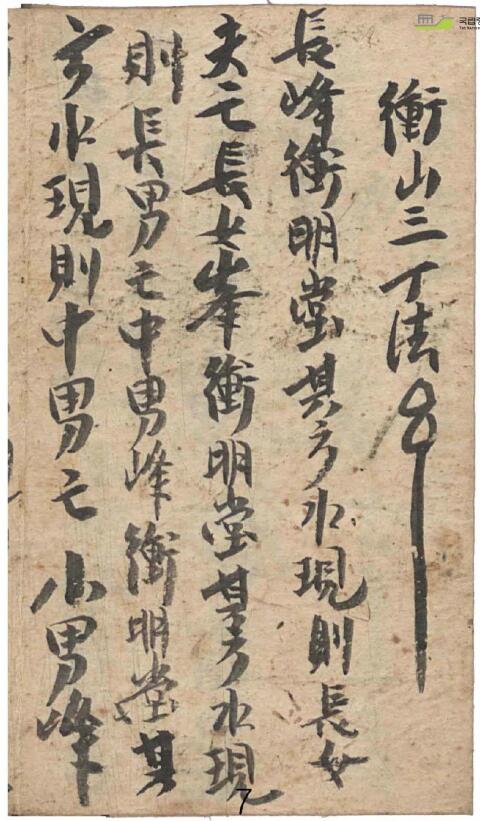 국립
衝山三丁法
長峰衝明堂其方水現則長女
夫亡長女峯衝明堂其方水現
則長男亡中男峰衝明堂其
方水現則中男亡 小男峰
7